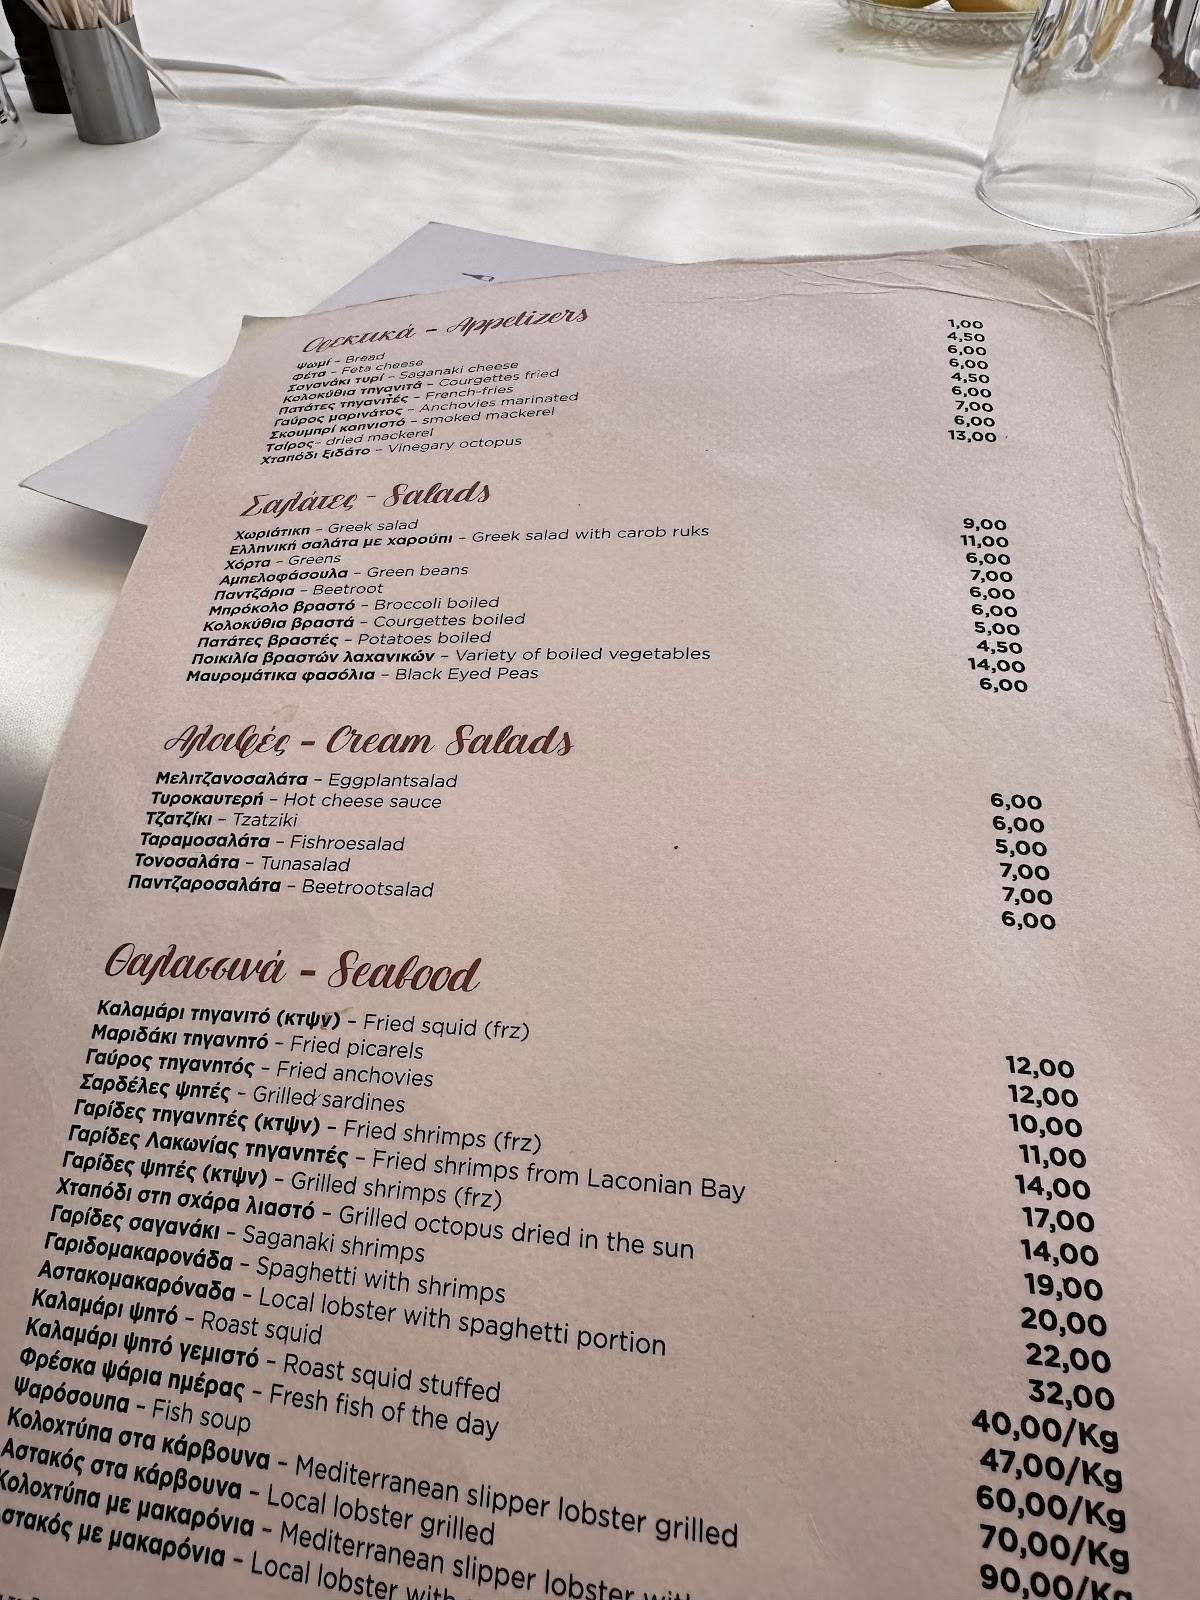 Ορεκτικά - Appetizers
Ψωμί - Bread 1,00
Φέτα - Feta cheese 4,50
Σαγανάκι τυρί - Saganaki cheese 6,00
Κολοκύθια τηγανιτά - Courgettes fried 6,00
Πατάτες τηγανιτές - French-fries 4,50
Γαύρος μαρινάτος - Anchovies marinated 6,00
Σκουμπρί καπνιστό - smoked mackerel 7,00
Τσίρος- dried mackerel 6,00
Χταπόδι ξιδάτο - Vinegary octopus 13,00
Σαλάτες - Salads
Χωριάτικη - Greek salad 9,00
Ελληνική σαλάτα με χαρούπι - Greek salad with carob ruks 11,00
Χόρτα - Greens 6,00
Αμπελοφάσουλα - Green beans 7,00
Παντζάρια - Beetroot 6,00
Μπρόκολο βραστό - Broccoli boiled 6,00
Κολοκύθια βραστά - Courgettes boiled 5,00
Πατάτες βραστές - Potatoes boiled 4,50
Ποικιλία βραστών λαχανικών - Variety of boiled vegetables 14,00
Μαυρομάτικα φασόλια - Black Eyed Peas 6,00
Αλοιφές - Cream Salads
Μελιτζανοσαλάτα - Eggplantsalad 6,00
Τυροκαυτερή - Hot cheese sauce 6,00
Τζατζίκι - Tzatziki 5,00
Ταραμοσαλάτα - Fishroesalad 7,00
Τονοσαλάτα - Tunasalad 7,00
Παντζαροσαλάτα - Beetrootsalad 6,00
Θαλασσινά - Seafood
Καλαμάρι τηγανιτό (κτψν) - Fried squid (frz) 12,00
Μαριδάκι τηγανητό - Fried picarels 12,00
Γαύρος τηγανητός - Fried anchovies 10,00
Σαρδέλες ψητές - Grilled sardines 11,00
Γαρίδες τηγανητές (κτψν) - Fried shrimps (frz) 14,00
Γαρίδες Λακωνίας τηγανητές - Fried shrimps from Laconian Bay 17,00
Γαρίδες ψητές (κτψν) - Grilled shrimps (frz) 14,00
Χταπόδι στη σχάρα λιαστό - Grilled octopus dried in the sun 19,00
Γαρίδες σαγανάκι - Saganaki shrimps 20,00
Γαριδομακαρονάδα - Spaghetti with shrimps 22,00
Αστακομακαρόναδα - Local lobster with spaghetti portion 32,00
Καλαμάρι ψητό - Roast squid 40,00/Kg
Καλαμάρι ψητό γεμιστό - Roast squid stuffed 47,00/Kg
Φρέσκα ψάρια ημέρας - Fresh fish of the day 60,00/Kg
Ψαρόσουπα - Fish soup 70,00/Kg
Κολοχτύπα στα κάρβουνα - Mediterranean slipper lobster grilled 90,00/Kg
Αστακός στα κάρβουνα - Local lobster grilled
Κολοχτύπα με μακαρόνια - Mediterranean slipper lobster
Αστακός με μακαρόνια - Local lobster with